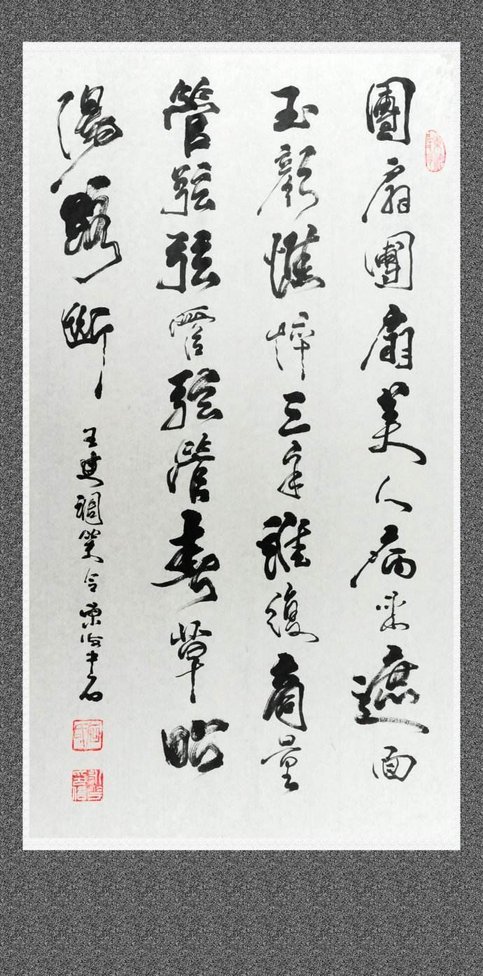 團扇團扇美人病來遮面
玉顏憔悴三年誰復商量
管弦弦管弦管春草昭
陽路斷
王建調笑令東海中石